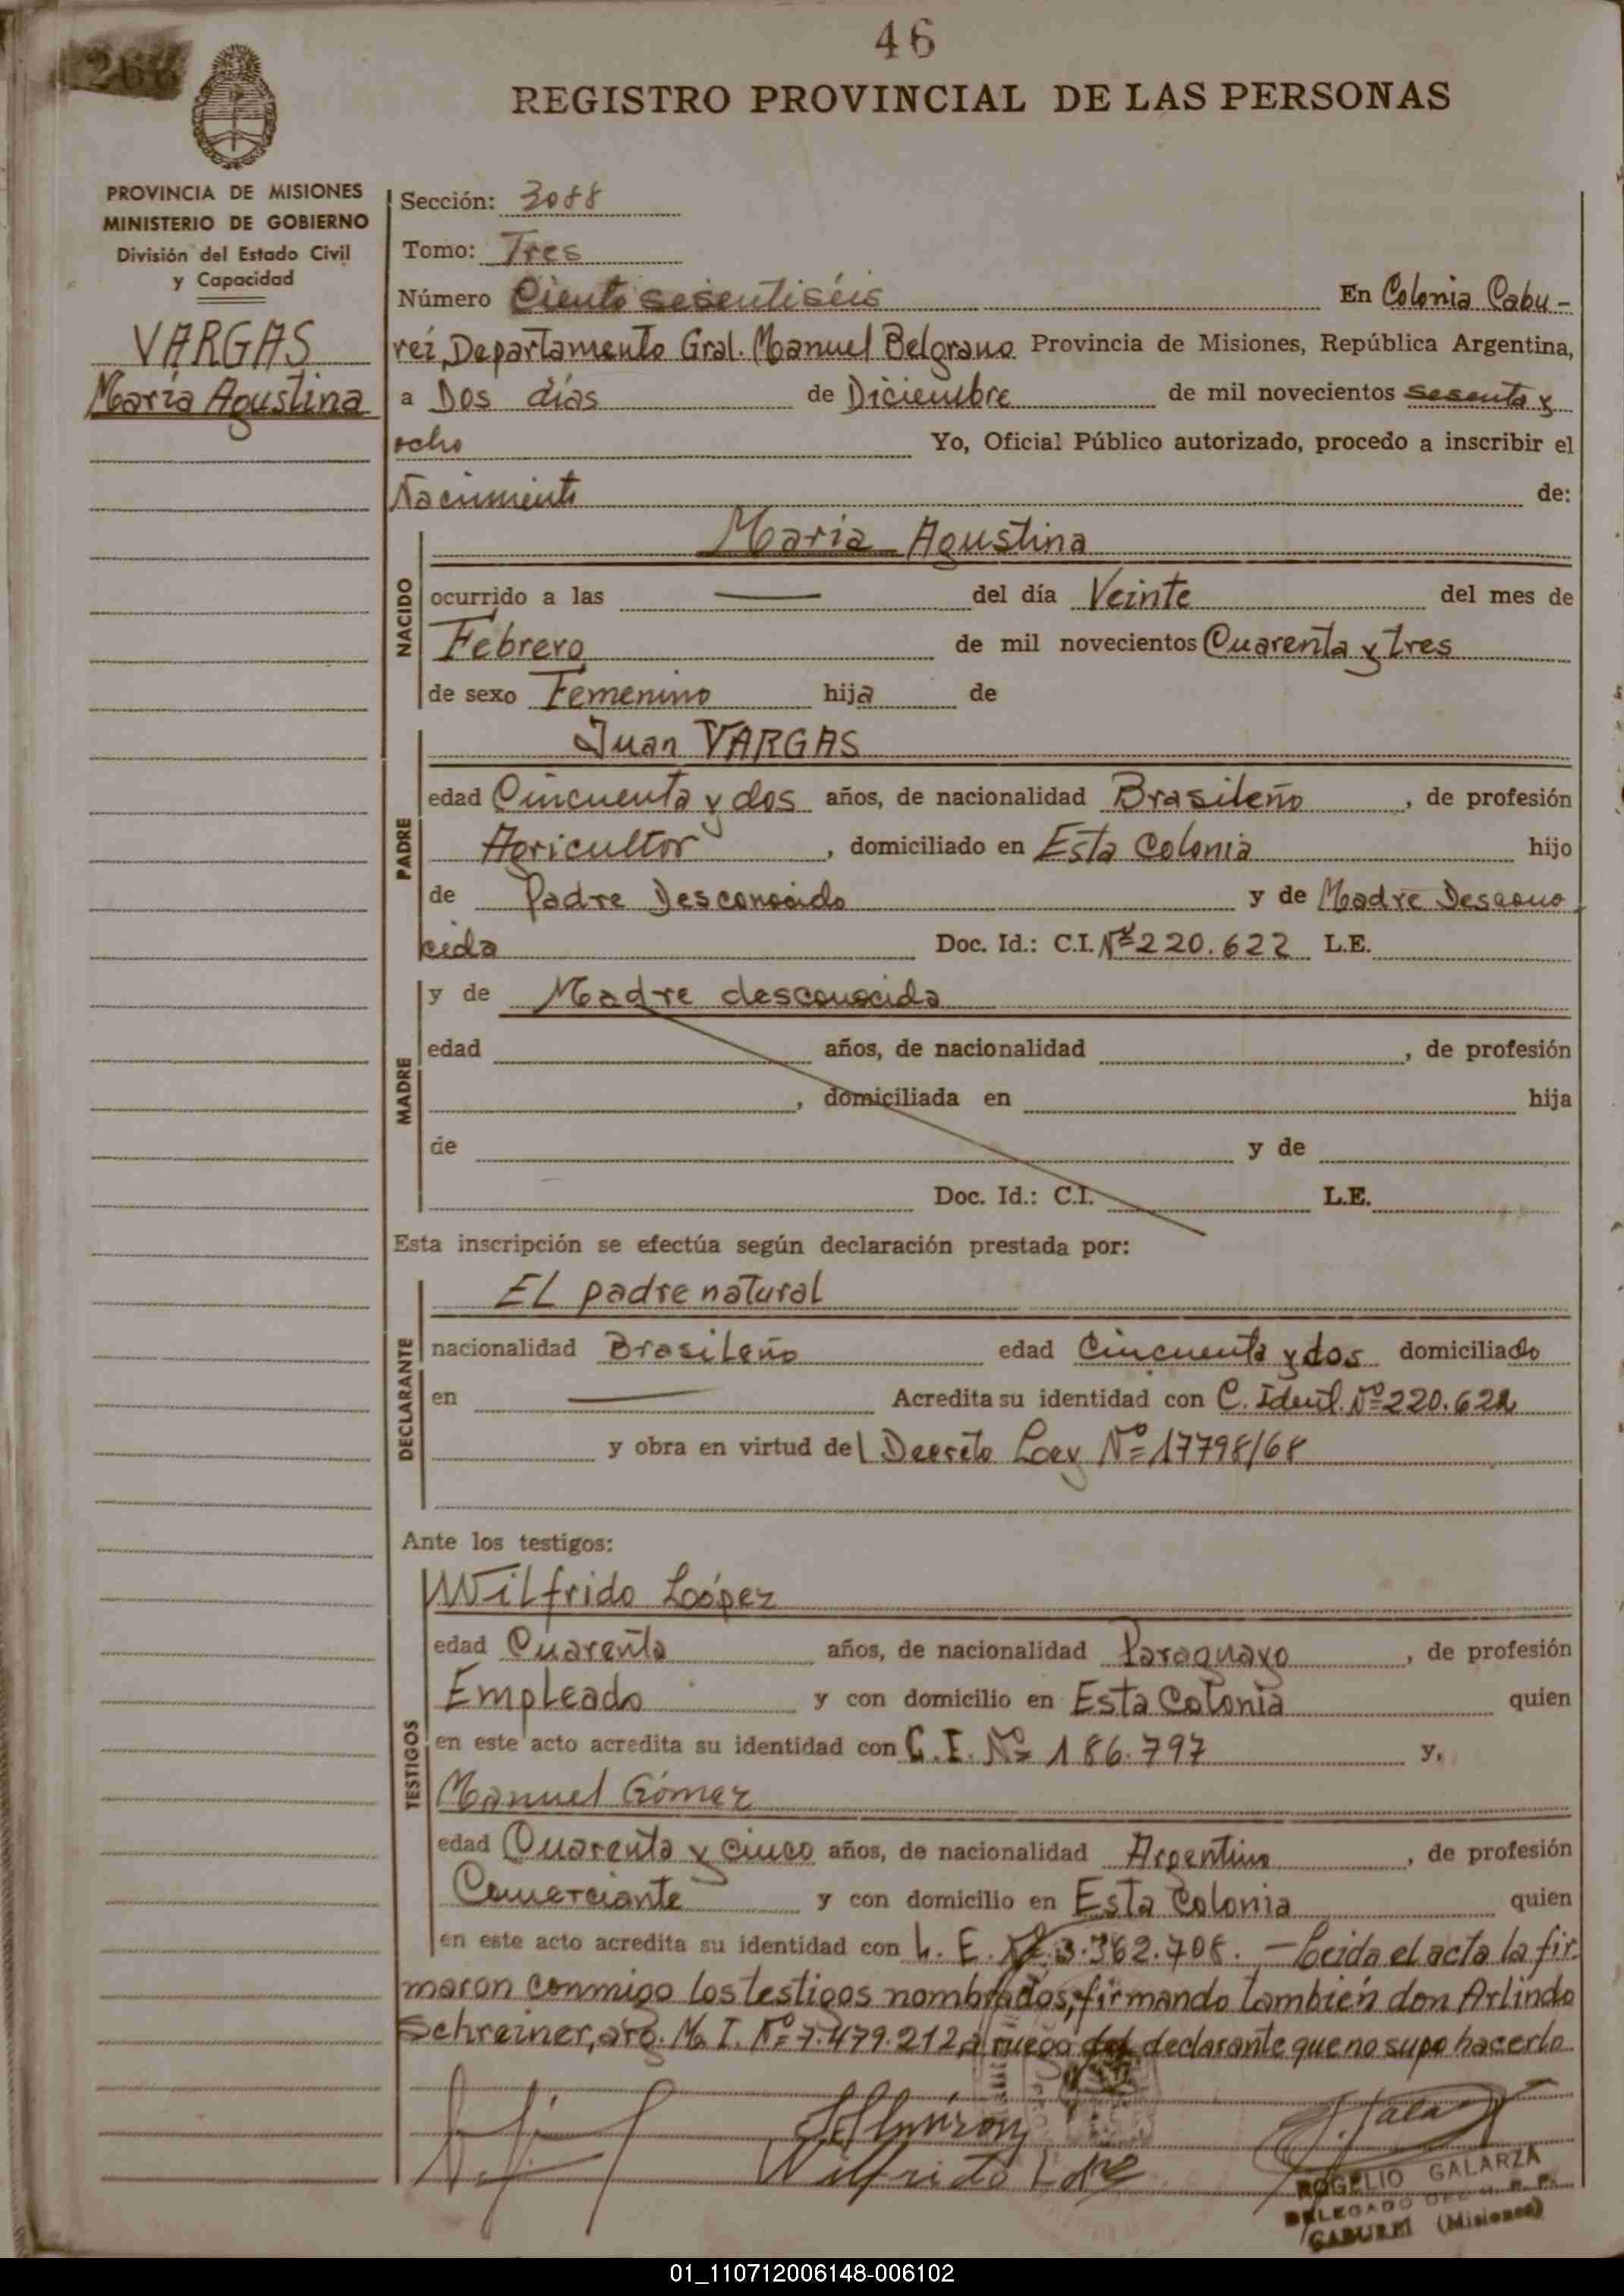 46
266
REGISTRO PROVINCIAL DE LAS PERSONAS
PROVINCIA DE MISIONES
MINISTERIO DE GOBIERNO
División del Estado Civil
y Capacidad
VARGAS
María Agustina
Sección: 3088
Tomo: Tres
Número Ciento sesentiséis En Colonia Cabu-
reí, Departamento Gral. Manuel Belgrano Provincia de Misiones, República Argentina,
a Dos días de Diciembre de mil novecientos sesenta y
ocho Yo, Oficial Público autorizado, procedo a inscribir el
Nacimiento de:
NACIDO
Maria Agustina
ocurrido a las — del día Veinte del mes de
Febrero de mil novecientos Cuarenta y tres
de sexo Femenino hija de
PADRE
Juan VARGAS
edad Cincuenta y dos años, de nacionalidad Brasileño, de profesión
Agricultor, domiciliado en Esta Colonia hijo
de Padre Desconocido y de Madre Descono
cida Doc. Id.: C.I. Nº 220.622 L.E.
MADRE
y de Madre desconocida
edad años, de nacionalidad , de profesión
, domiciliada en hija
de y de
Doc. Id.: C.I. L.E.
Esta inscripción se efectúa según declaración prestada por:
DECLARANTE
EL padre natural
nacionalidad Brasileño edad Cincuenta y dos domiciliado
en — Acredita su identidad con C. Ident. Nº 220.622
y obra en virtud del Decreto Ley Nº 17798/68
Ante los testigos:
TESTIGOS
Wilfrido Loópez
edad Cuarenta años, de nacionalidad Paraguayo, de profesión
Empleado y con domicilio en Esta Colonia quien
en este acto acredita su identidad con C.I. Nº 186.797 y,
Manuel Gómez
edad Cuarenta y cinco años, de nacionalidad Argentino, de profesión
Comerciante y con domicilio en Esta Colonia quien
en este acto acredita su identidad con L. E. Nº 3.362.708. - Leida el acta la fir
maron conmigo los testigos nombrados, firmando también don Arlindo
Schreiner, arg. M. I. Nº 7.479.212, a ruego del declarante que no supo hacerlo
Wilfrido
ROGELIO GALARZA
DELEGADO DEL R. P. P.
CABUREI (Misiones)
01_110712006148-006102